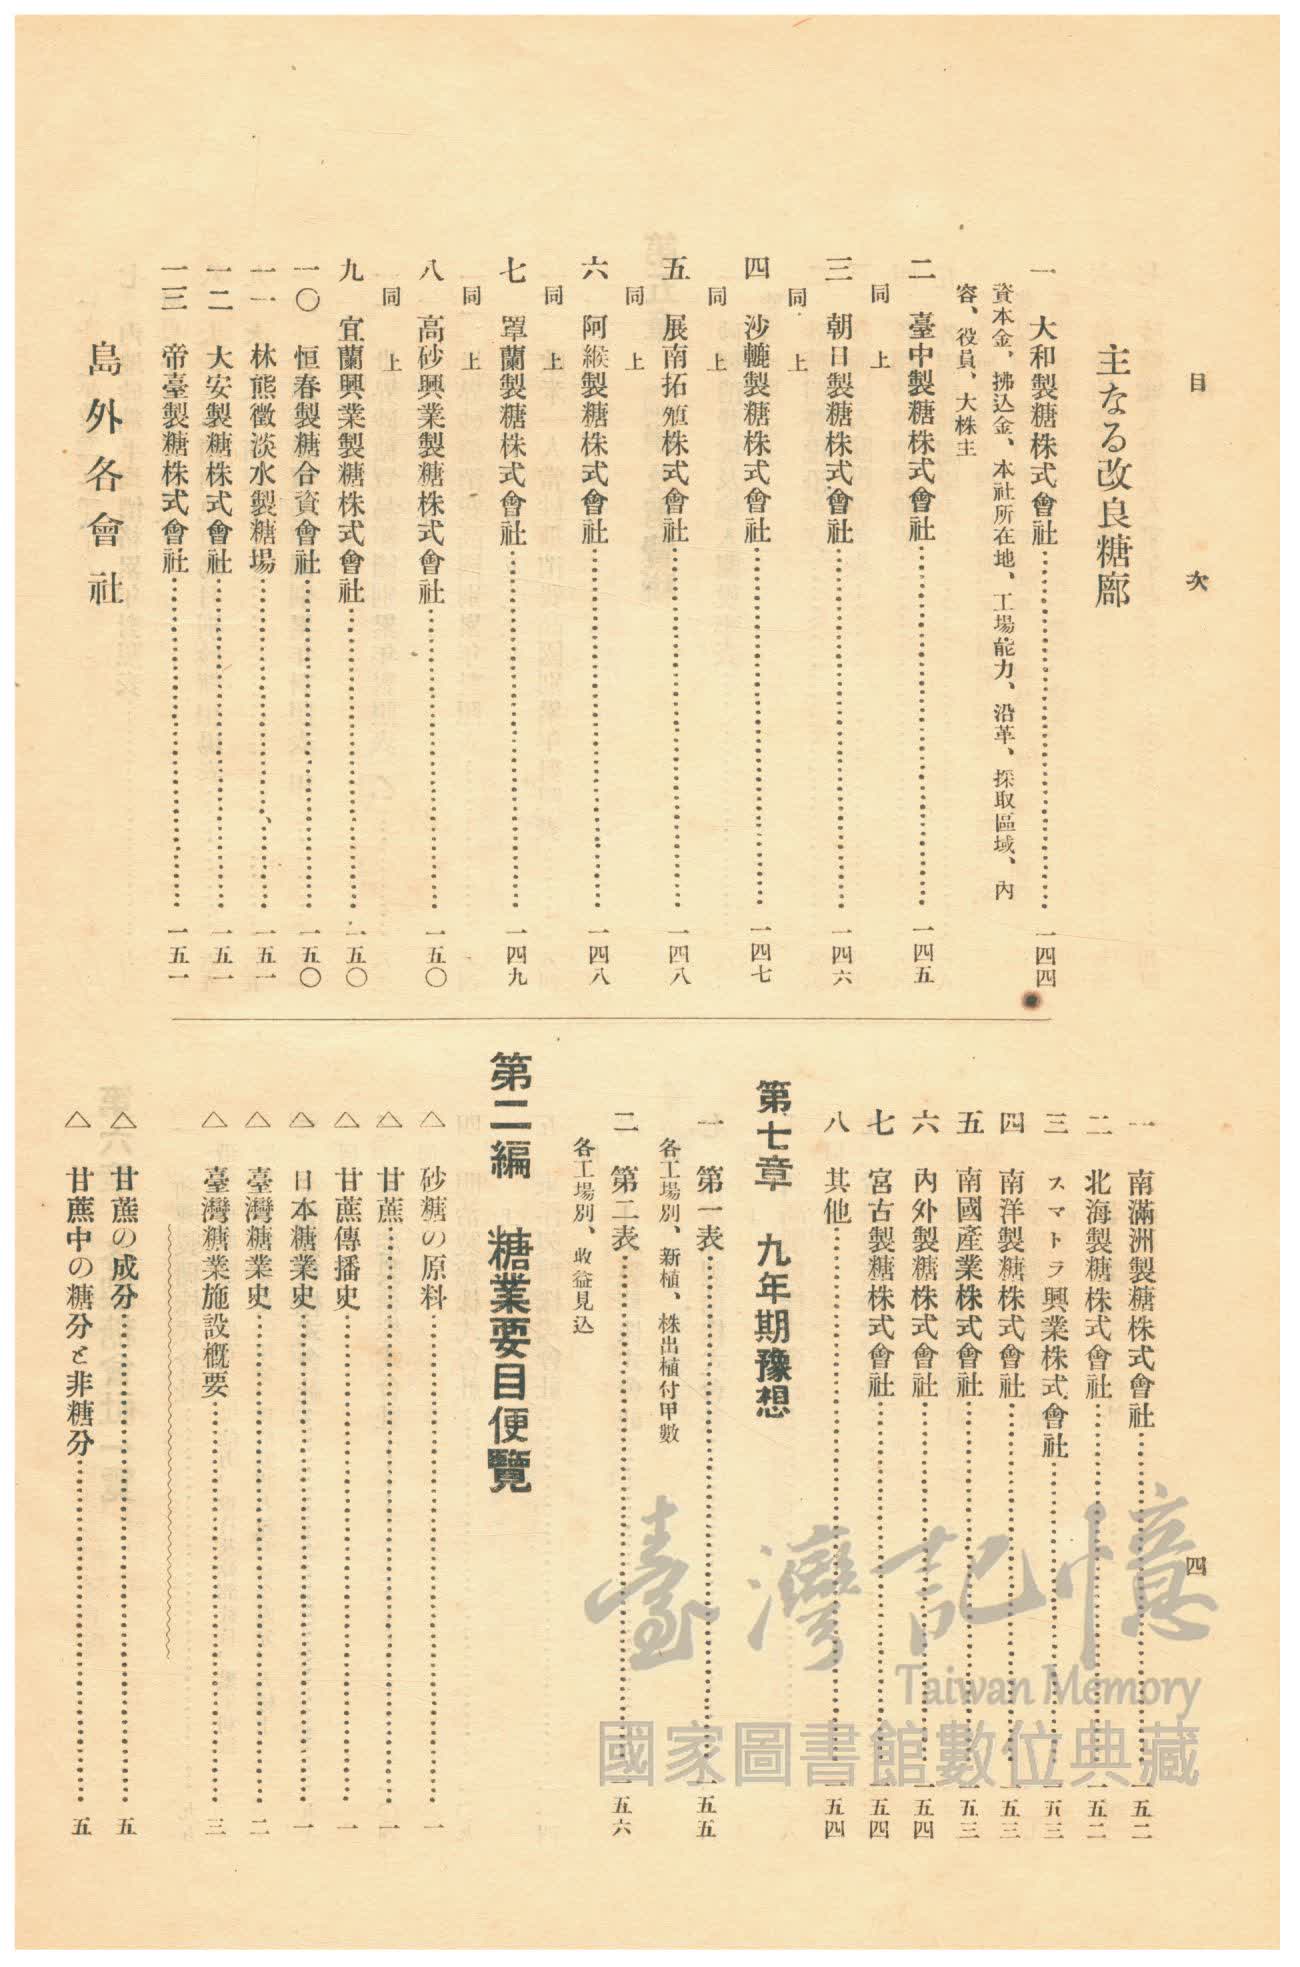 目次
四
主なる改良糖廍
一 大和製糖株式會社……一四四
資本金、拂込金、本社所在地、工場能力、沿革、採取區域、內
容、役員、大株主
二 臺中製糖株式會社……一四五
同上
三 朝日製糖株式會社……一四六
同上
四 沙轆製糖株式會社……一四七
同上
五 展南拓殖株式會社……一四八
同上
六 阿緱製糖株式會社……一四八
同上
七 罩蘭製糖株式會社……一四九
同上
八 高砂興業製糖株式會社……一五〇
同上
九 宜蘭興業製糖株式會社……一五〇
一〇 恒春製糖合資會社……一五〇
一一 林熊徵淡水製糖場……一五一
一二 大安製糖株式會社……一五一
一三 帝臺製糖株式會社……一五一
島外各會社
一 南滿洲製糖株式會社……一五二
二 北海製糖株式會社……一五二
三 スマトラ興業株式會社……一五三
四 南洋製糖株式會社……一五三
五 南國產業株式會社……一五三
六 內外製糖株式會社……一五四
七 宮古製糖株式會社……一五四
八 其他……一五四
第七章 九年期豫想
一 第一表……一五五
各工場別、新植、株出植付甲數
二 第二表……一五六
各工場別、收益見込
第二編 糖業要目便覽
△ 砂糖の原料……一
△ 甘蔗……一
△ 甘蔗傳播史……一
△ 日本糖業史……一
△ 臺灣糖業史……二
△ 臺灣糖業施設概要……三
△ 甘蔗の成分……五
△ 甘蔗中の糖分と非糖分……五
臺灣記憶
Taiwan Memory
國家圖書館數位典藏